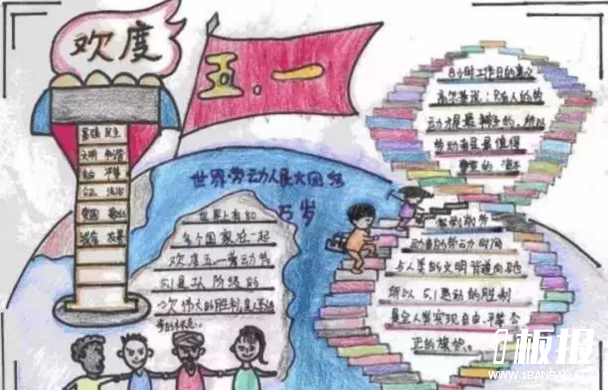 欢度
五.一
富强 民主
文明 和谐
平等
公正 法治
爱国 敬业
诚信 友善
世界劳动人民大团结
万岁
世界上有80
多个国家在一起
欢度五一劳动节
5.1是工人阶级的
一次伟大的胜利
8小时工作日的意义
高尔基说：只有人的劳
动才是最神圣的，所以
劳动者是最值得
动者的劳动时间
与人类的文明背道而驰
所以5.1运动的胜利
是全人类实现自由、平等、公
正的旗帜。
板报
WWW.1BANBAO.COM